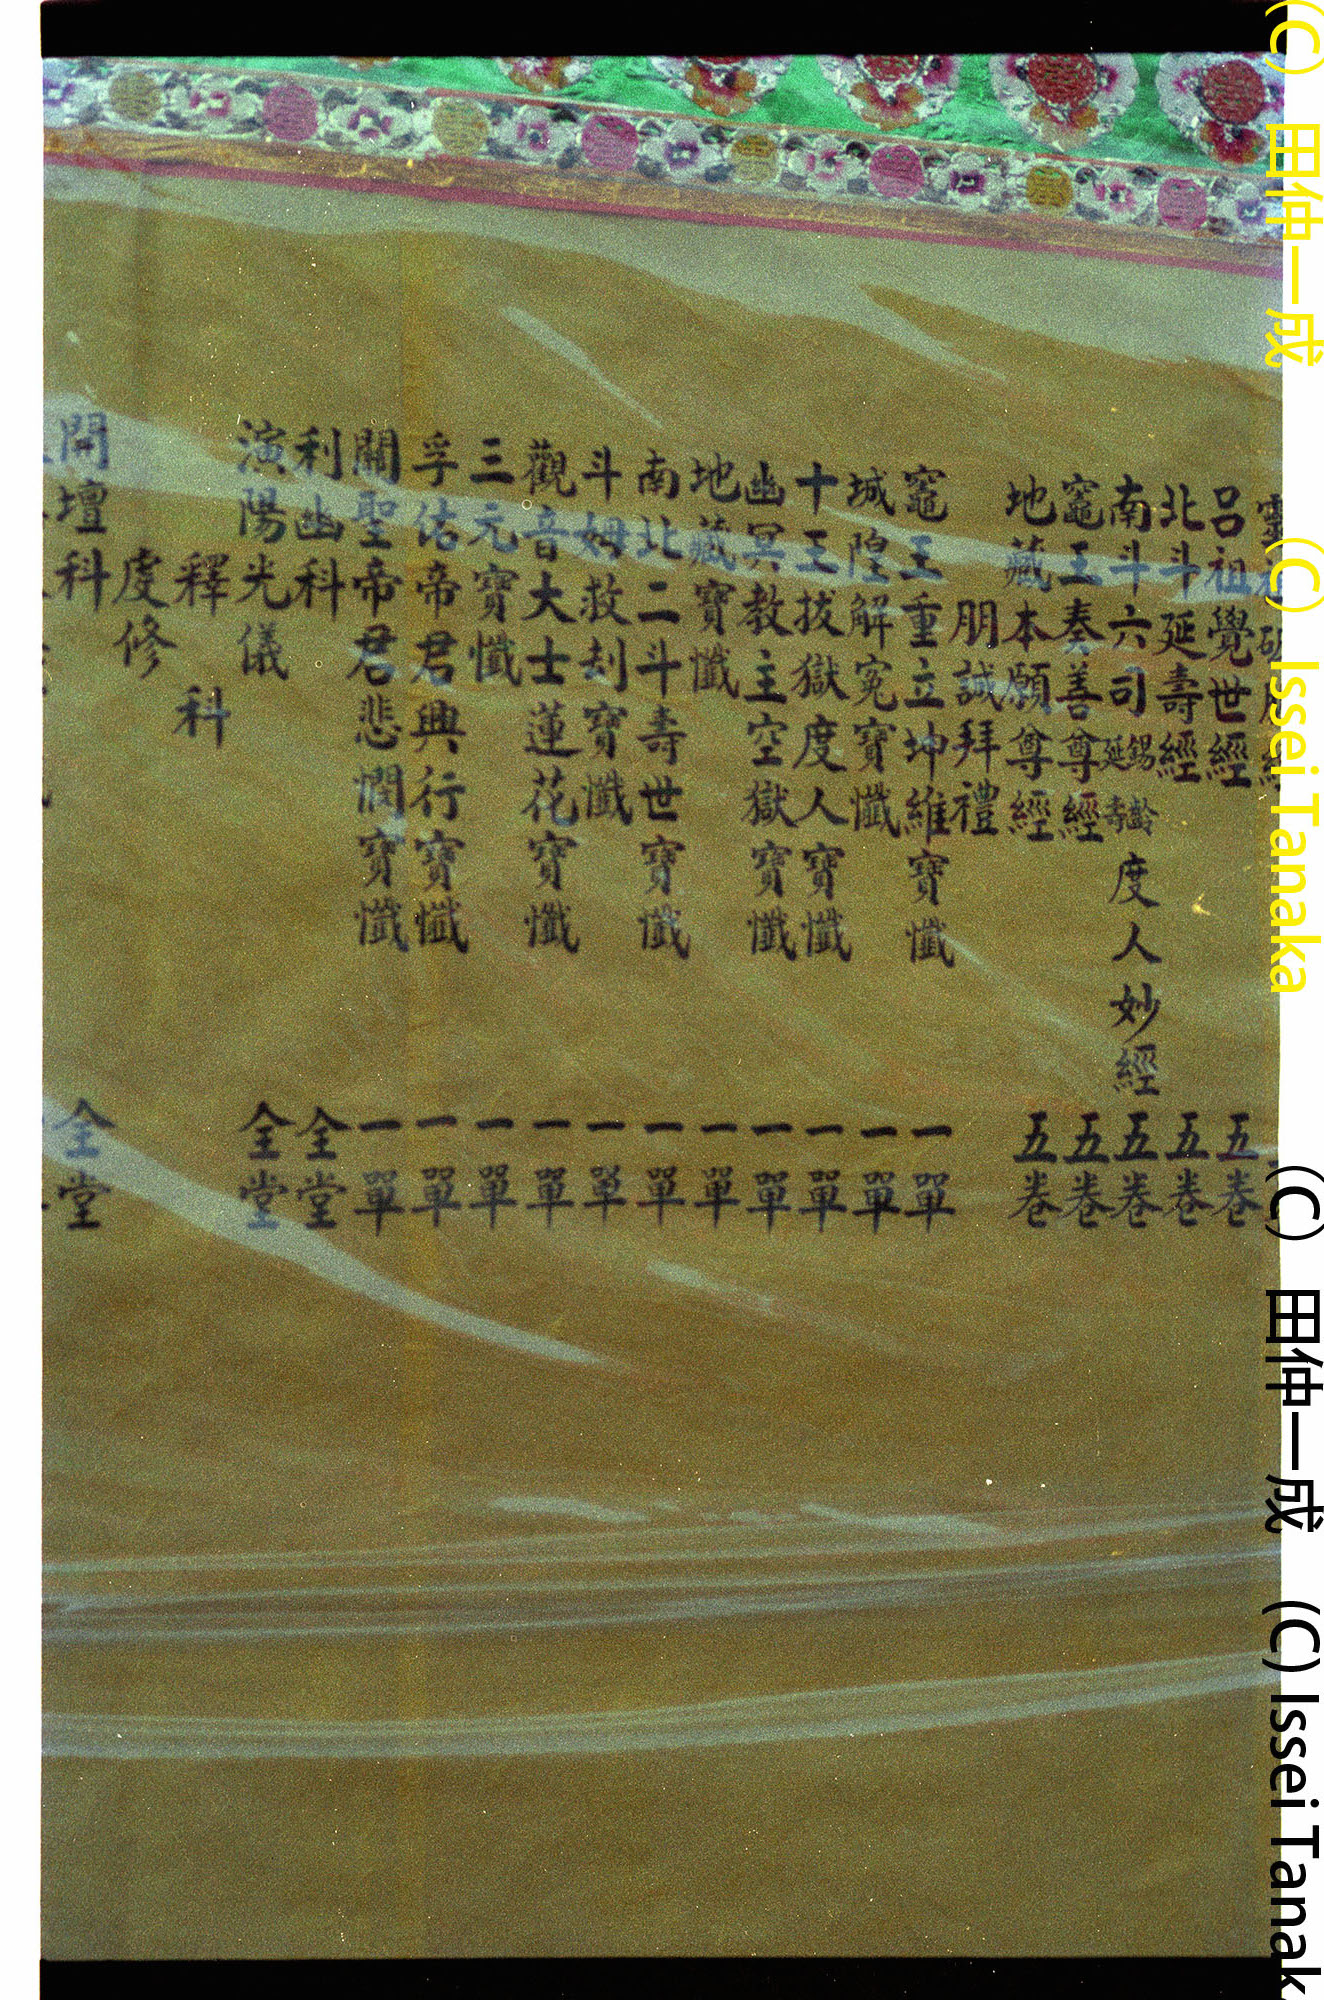 呂祖覺世經 五卷
北斗延壽經 五卷
南斗六司延壽錫齡度人妙經 五卷
竈王奏善尊經 五卷
地藏本願尊經 五卷
朋誠拜禮
竈王重立坤維寶懺 一單
城隍解冤寶懺 一單
十王拔獄度人寶懺 一單
幽冥教主空獄寶懺 一單
地藏寶懺 一單
南北二斗壽世寶懺 一單
斗姆救刦寶懺 一單
觀音大士蓮花寶懺 一單
三元寶懺 一單
孚佑帝君興行寶懺 一單
關聖帝君悲憫寶懺 一單
利幽科 全堂
演陽光儀 全堂
釋科
虔修
開壇科 全堂
(C) 田仲一成 (C) Issei Tanaka
(C) 田仲一成 (C) Issei Tanak